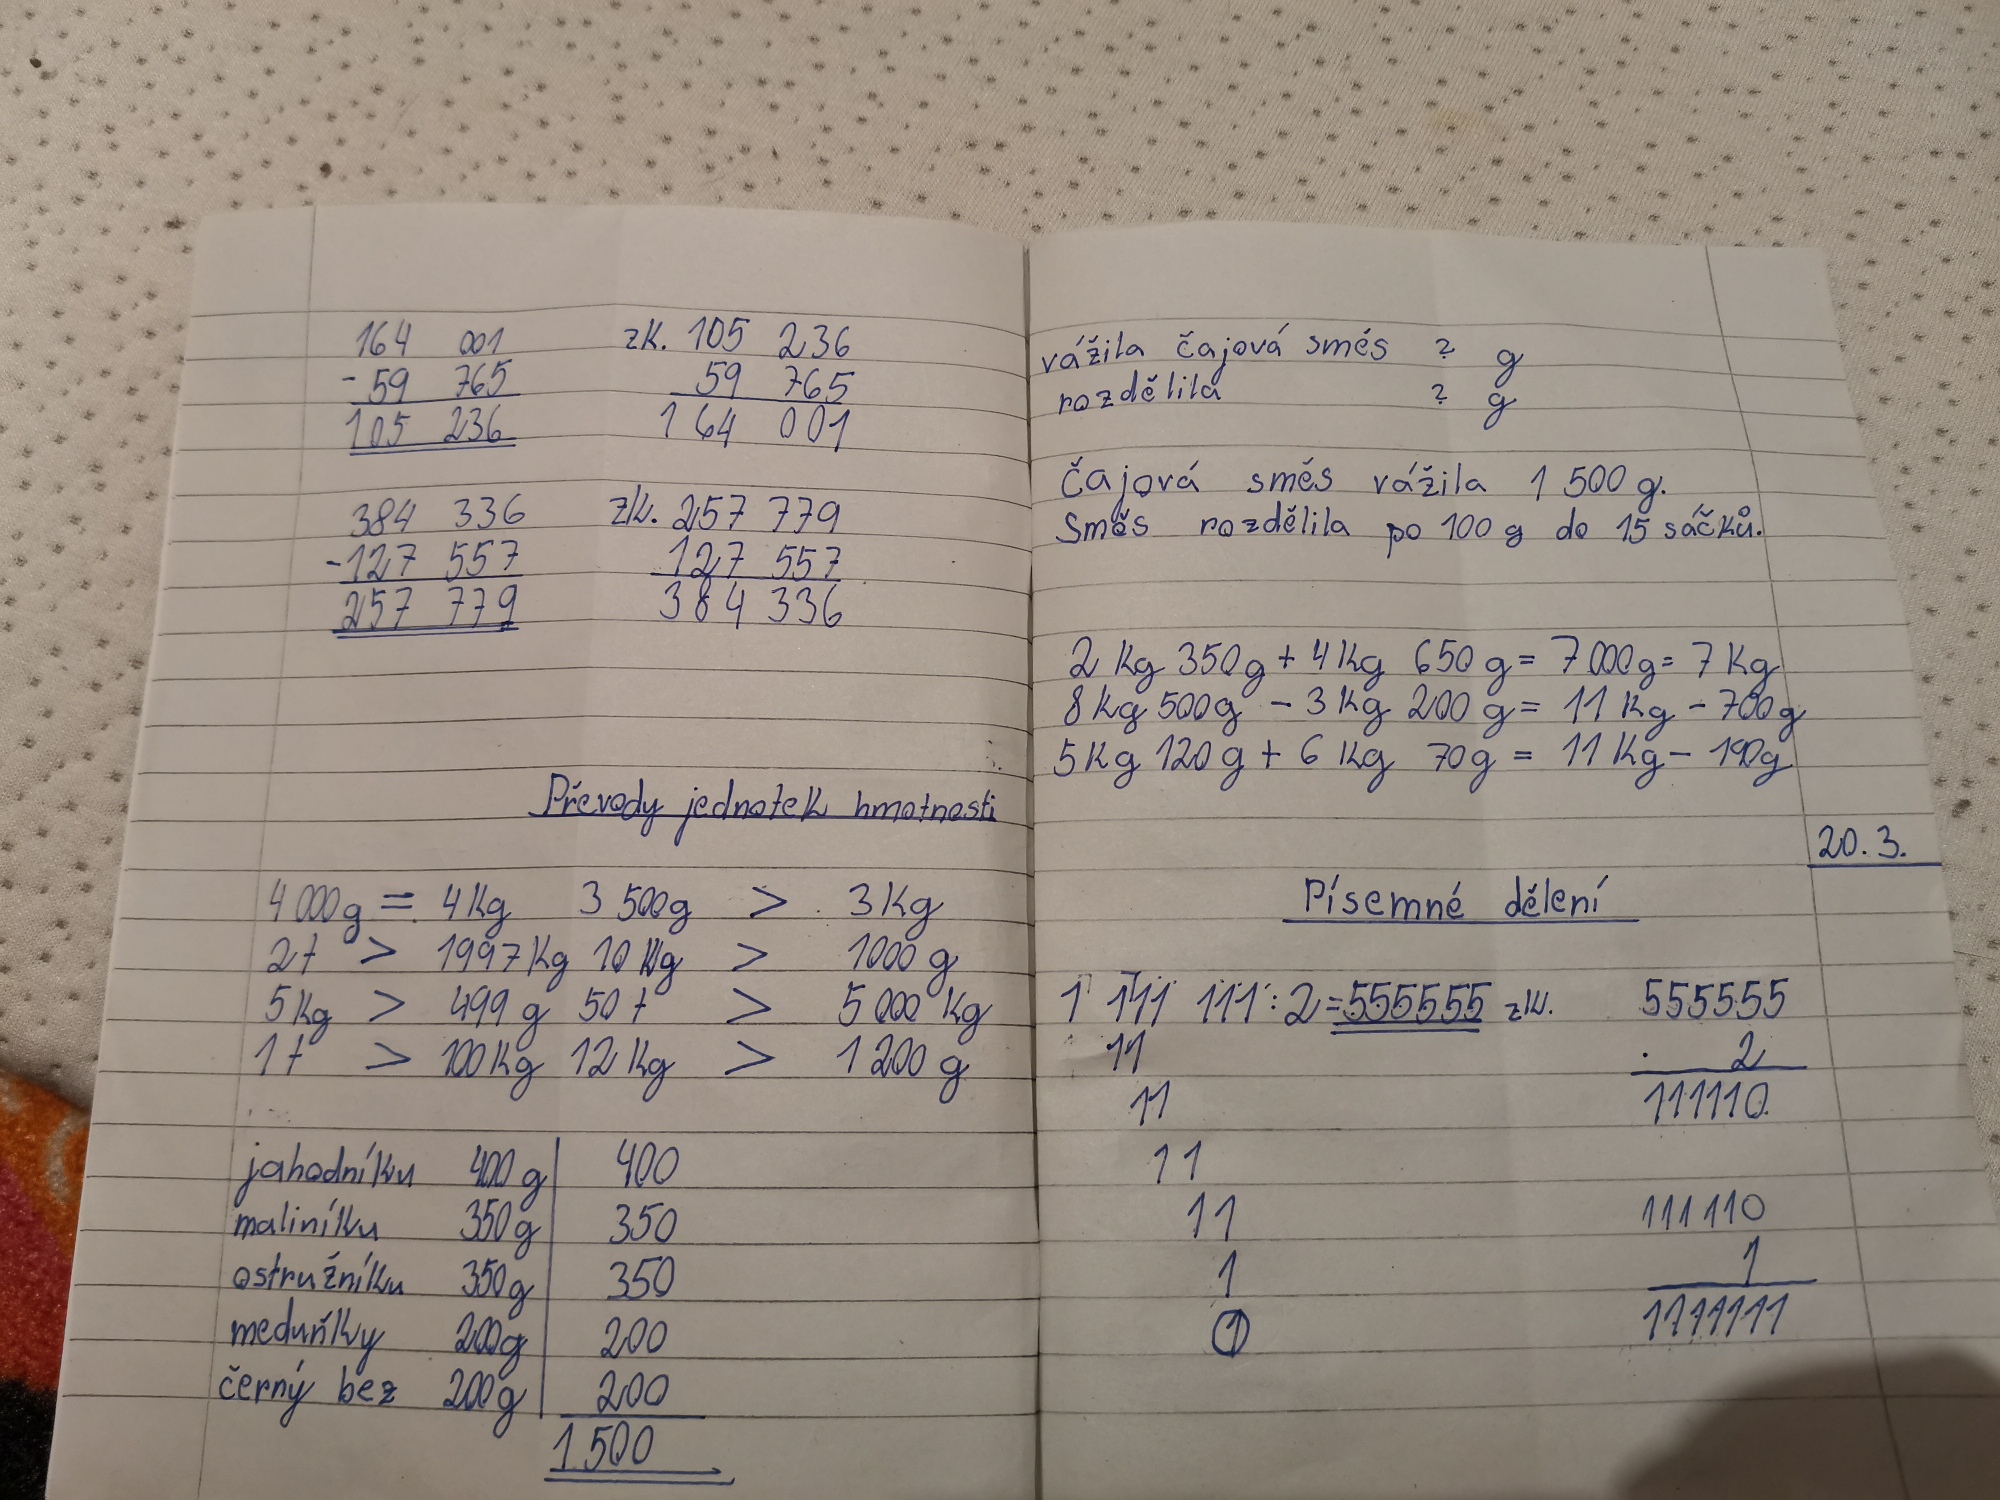 164 001 zk. 105 236
- 59 765 59 765
105 236 164 001
384 336 zk. 257 779
- 127 557 127 557
257 779 384 336
Převody jednotek hmotnosti
4 000 g = 4 Kg 3 500g > 3 Kg
2 t > 1997 Kg 10 Kg > 1000 g
5 Kg > 499 g 50 t > 5 000 Kg
1 t > 100 Kg 12 Kg > 1 200 g
jahodníku 400 g 400
maliníku 350 g 350
ostružníku 350g 350
meduňky 200g 200
černý bez 200g 200
1 500
vážila čajová směs ? g
rozdělila ? g
Čajová směs vážila 1 500 g.
Směs rozdělila po 100 g do 15 sáčků.
2 Kg 350g + 4 Kg 650 g = 7 000g = 7 Kg
8 Kg 500g - 3 Kg 200 g = 11 Kg - 700g
5 Kg 120 g + 6 Kg 70 g = 11 Kg - 190g
20. 3.
Písemné dělení
1 111 111 : 2 = 555555 zk. 555555
11 . 2
11 111110
11
11 111110
1 1
1 1111111